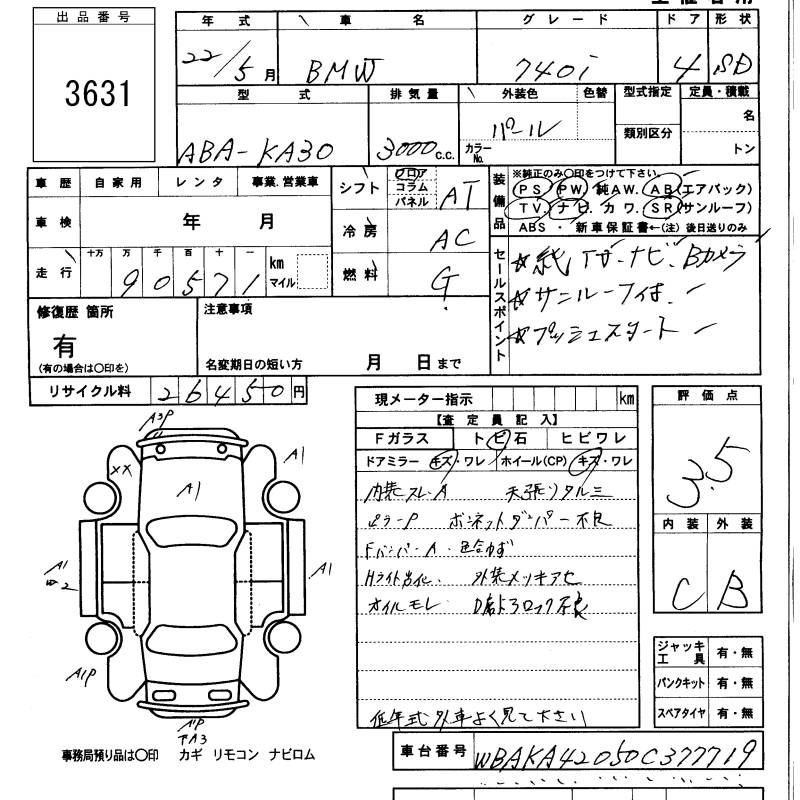 出品番号
3631
年式 車名 グレード ドア 形状
22/5月 BMW 740i 4 SD
型式 排気量 外装色 色替 型式指定 定員・積載
ABA-KA30 3000c.c. カラーNo. パール 類別区分 名 トン
車歴 自家用 レンタ 事業.営業車 シフト フロア コラム パネル AT
車検 年 月 冷房 AC
走行 十万 万 千 百 十 一 km マイル 燃料 G
90571
装備品 ※純正のみ〇印をつけて下さい。
PS PW 純AW. AB(エアバック)
TV. ナビ. カワ. SR(サンルーフ)
ABS ・ 新車保証書←(注) 後日送りのみ
セールスポイント
☆純 TV・ナビ. Bカメラ
☆サンルーフ付
☆プッシュスタート
修復歴 箇所
有
(有の場合は〇印を)
注意事項
名変期日の短い方 月 日まで
リサイクル料 26450円
現メーター指示 km
【査定員記入】
Fガラス トビ石 ヒビワレ
ドアミラー キズ・ワレ ホイール(CP) キズ・ワレ
内装スレ・A 天張りタルミ
ピラーP ボンネットダンパー不良
Fバンパー・A. 色合わず
Hライト劣化. 外装メッキアセ
オイルモレ
低年式 外車よく見て下さい
評価点
3.5
内装 外装
C B
ジャッキ工具 有・無
パンクキット 有・無
スペアタイヤ 有・無
A3P
A1
XX
A1
A1
2
A1
A1P
A1P
下A3
事務局預り品は〇印 カギ リモコン ナビロム
車台番号 WBAKA42050C377719